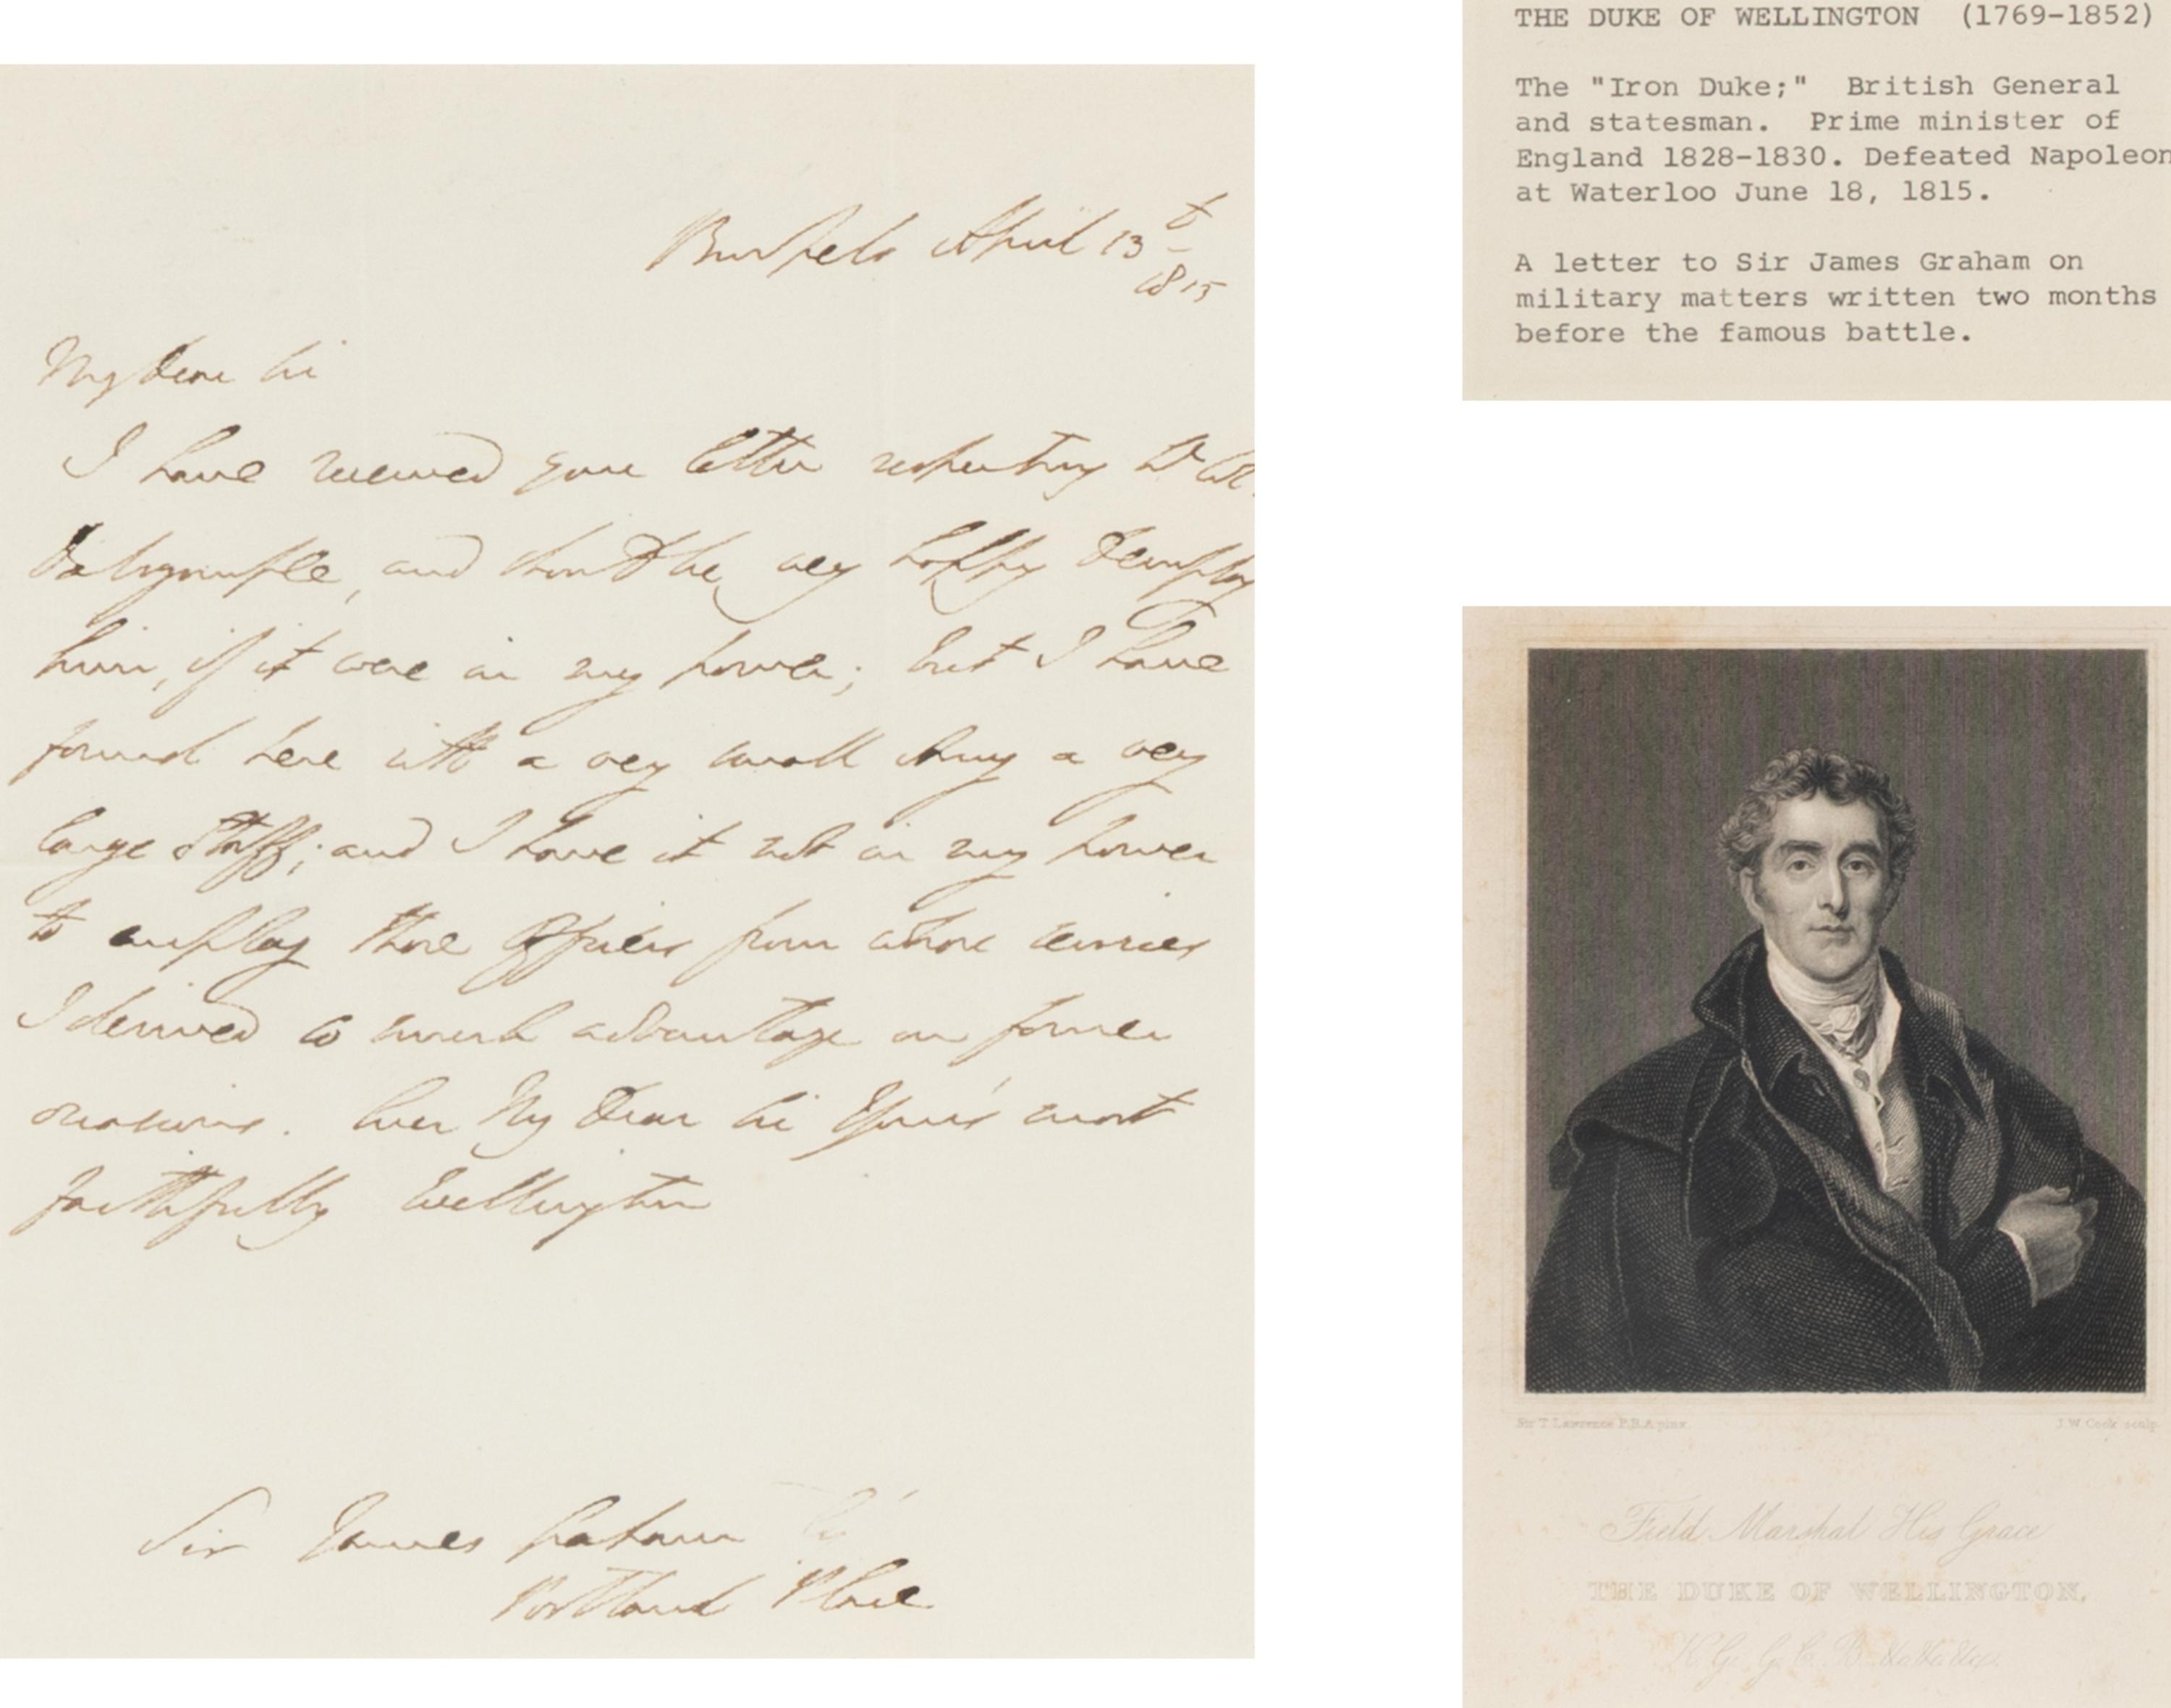 Bruxelles April 13th
1815
My dear Sir
I have received your letter respecting Lt Col.
Dalrymple, and should be very happy to employ
him, if it were in my power; but I have
found here with a very small Army a very
large Staff; and I have it not in my power
to employ those Officers from whose services
I derived so much advantage on former
occasions. Ever My Dear Sir Yours most
faithfully Wellington
Sir James Graham
Portland Place
THE DUKE OF WELLINGTON (1769-1852)
The "Iron Duke;" British General
and statesman. Prime minister of
England 1828-1830. Defeated Napoleon
at Waterloo June 18, 1815.
A letter to Sir James Graham on
military matters written two months
before the famous battle.
Sir T. Lawrence P.R.A. pinx.
J.W. Cook sculp.
Field Marshal His Grace
THE DUKE OF WELLINGTON,
K.G. G.C.B. &c. &c. &c.